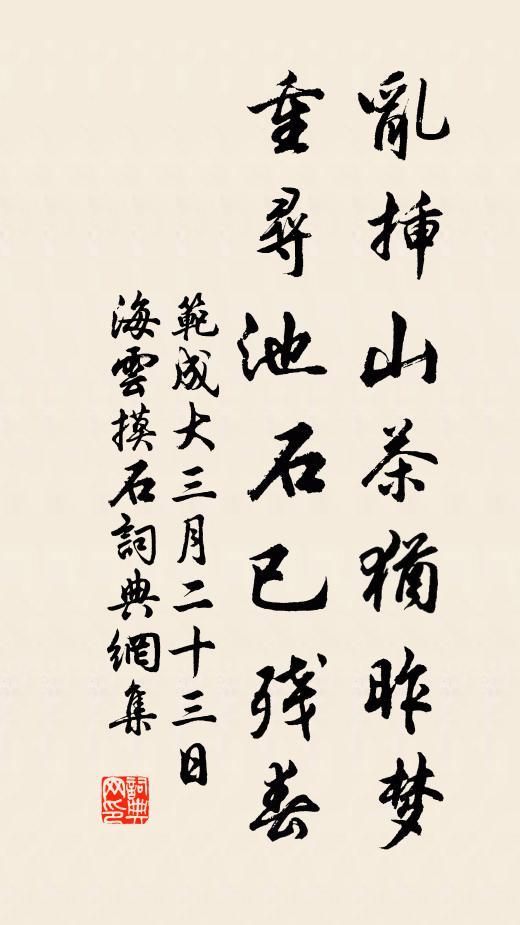 亂挿山茶猶昨梦
重尋池石已残春
範成大三月二十三日
海雲摸石詞典網集
詞典网印